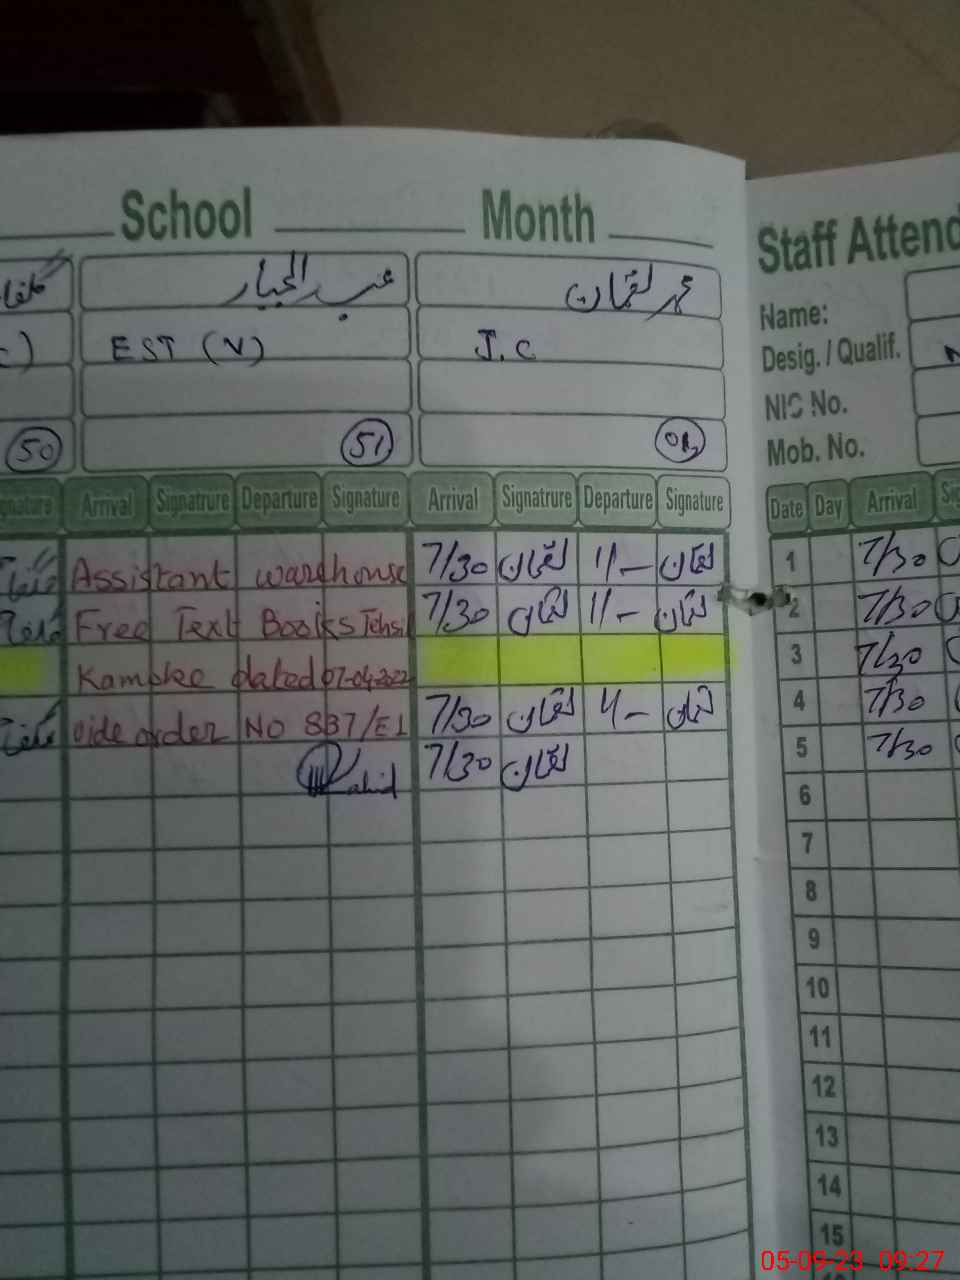 School Month
Staff Attend
عبدالجبار محمد لقمان
Name:
EST (V) J.C
Desig. / Qualif.
NIC No.
50 51
Mob. No.
Arrival Signatrure Departure Signature Arrival Signatrure Departure Signature
Date Day Arrival
Assistant warehouse 7/30 لقمان 11/- لقمان
1 7/30
Free Text Books Tehsil 7/30 لقمان 11/- لقمان
2 7/30
Kamoke dated 07-04-2022
3 7/30
vide order NO 837/E1 7/30 لقمان لقمان
4 7/30
7/30 لقمان
5 7/30
6
7
8
9
10
11
12
13
14
15
05-09-23 09:27